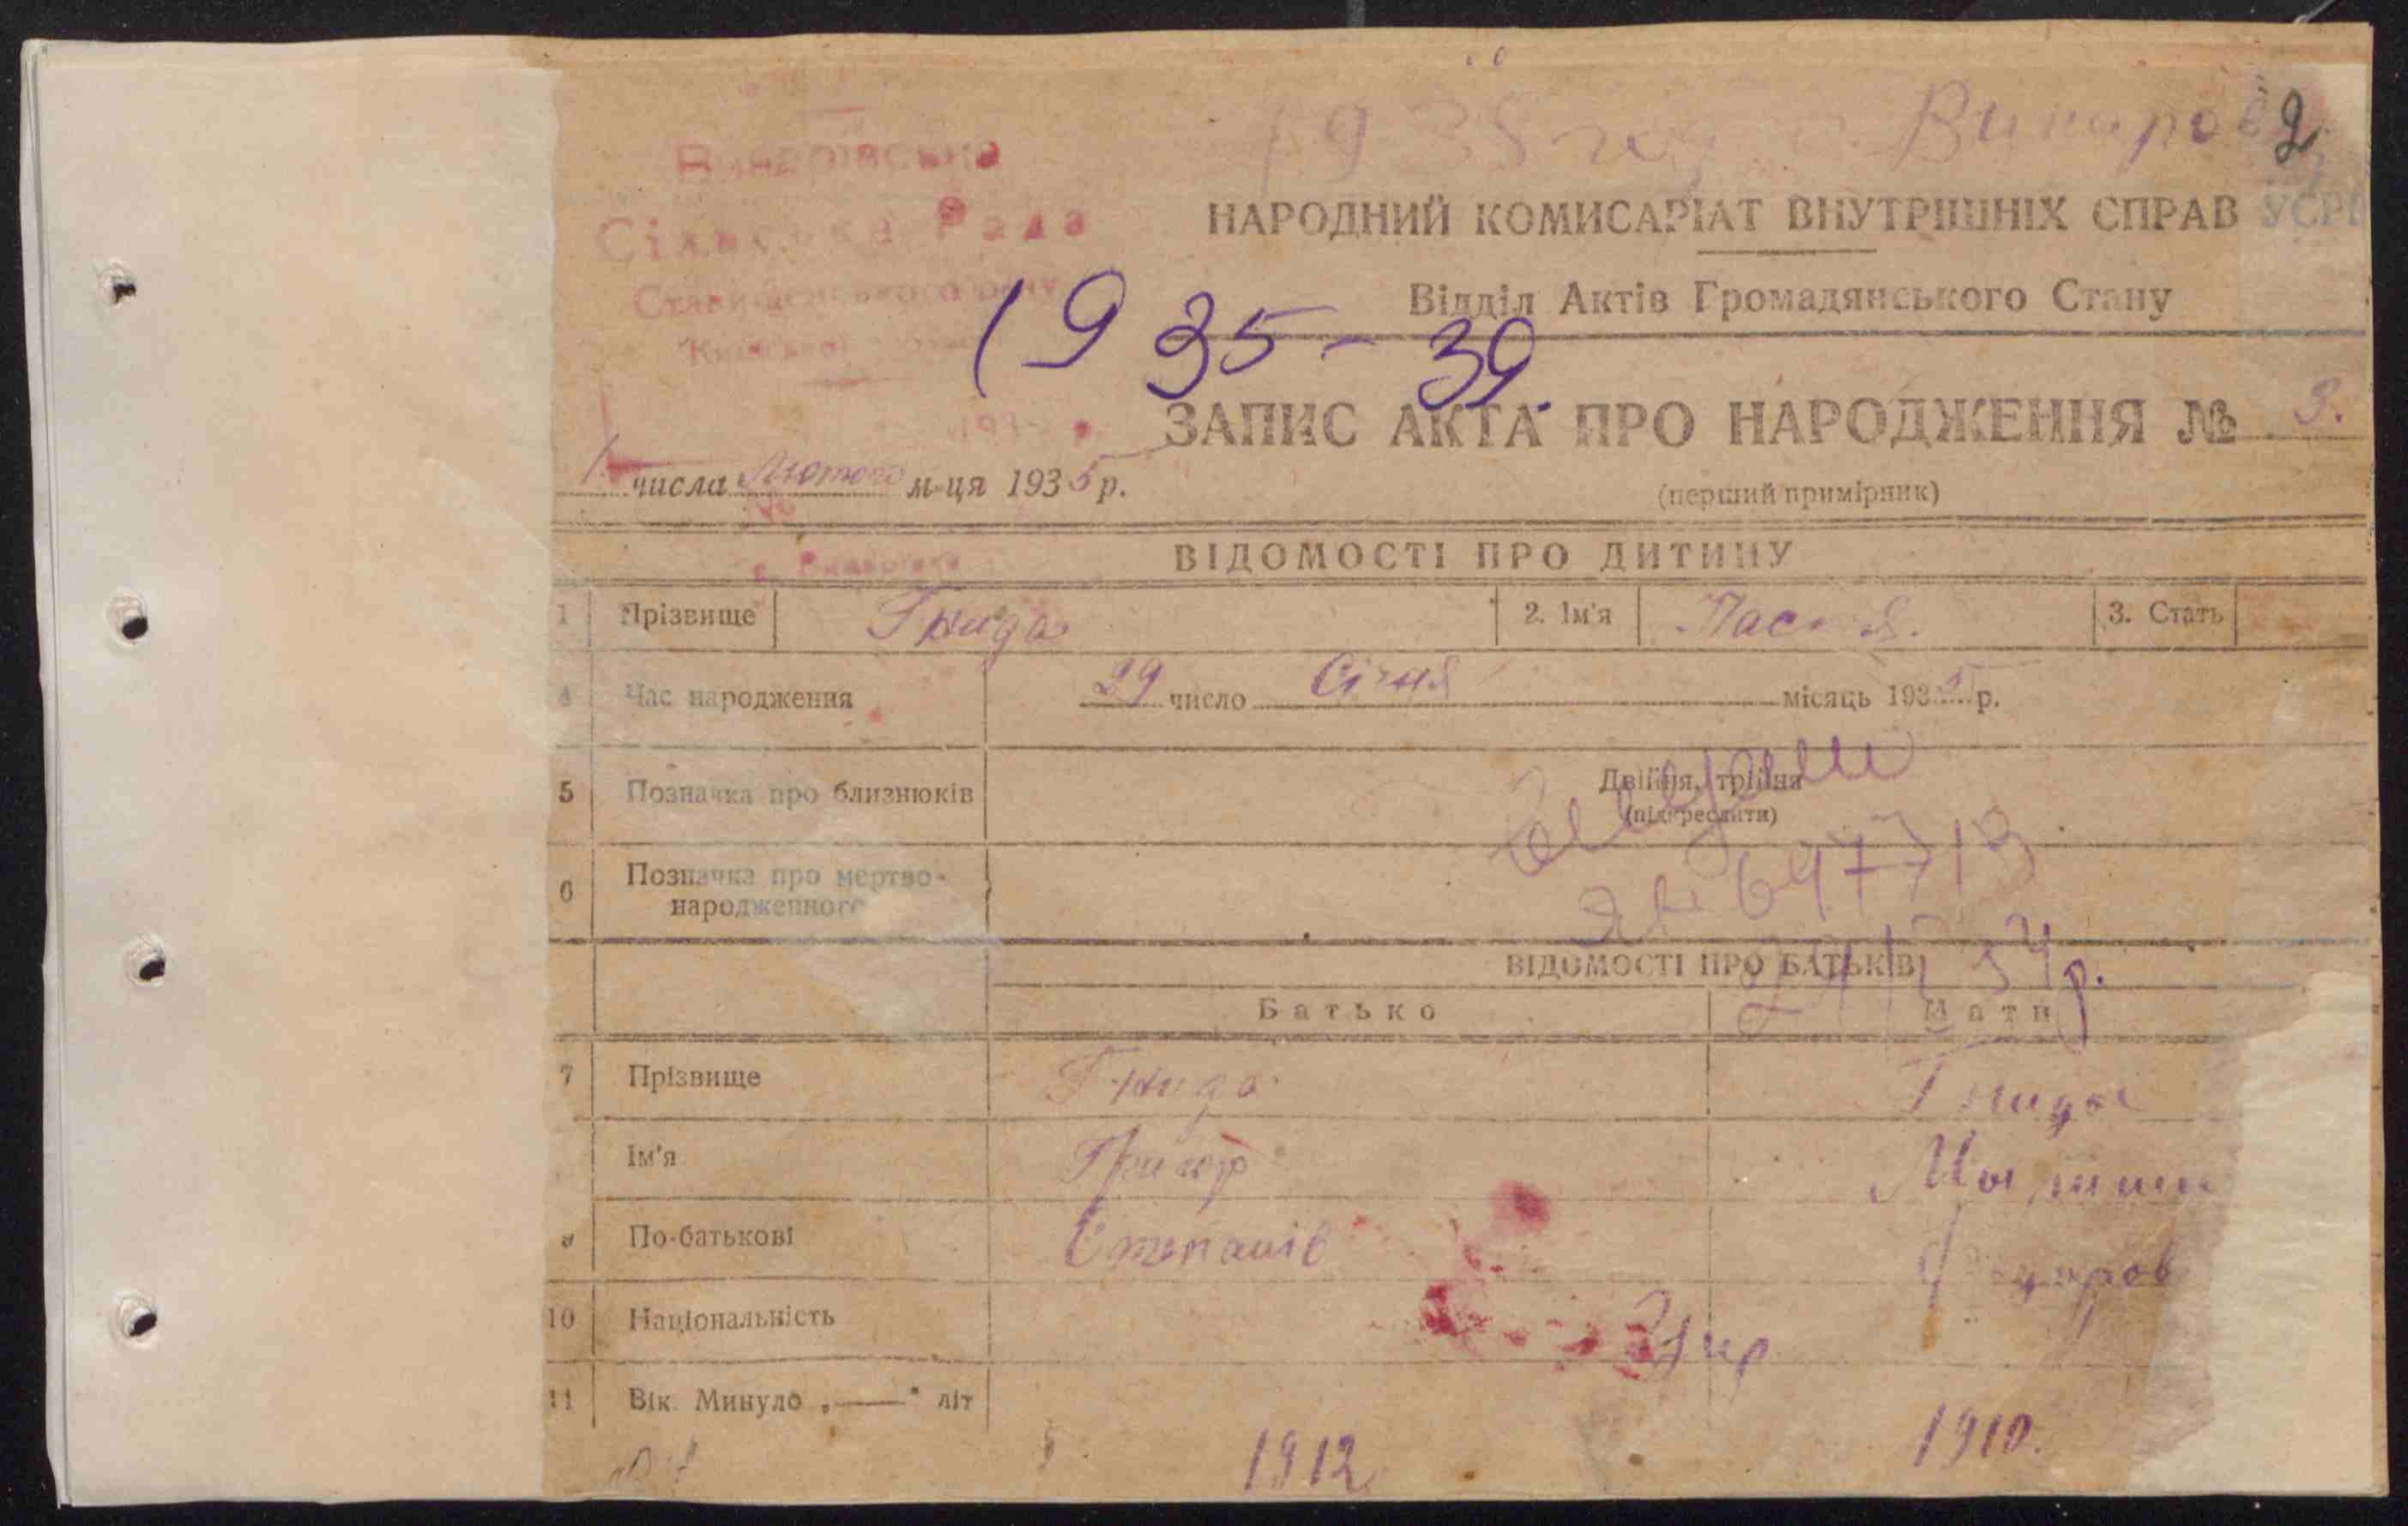 1935 год Винаров 2
Винарівська
Сільська Рада
Ставищенського р-ну
Київської
НАРОДНИЙ КОМИСАРІАТ ВНУТРІШНІХ СПРАВ УСРР
Відділ Актів Громадянського Стану
1935-39.
ЗАПИС АКТА ПРО НАРОДЖЕННЯ № 3.
(перший примірник)
1 числа Лютого м-ця 1935 р.
с. Винарівка
ВІДОМОСТІ ПРО ДИТИНУ
1 Прізвище Гнида 2. Ім'я Настя. 3. Стать
4 Час народження 29 число Січня місяць 1935 р.
5 Позначка про близнюків Двійня, трійня
(підкреслити)
6 Позначка про мертво-
народженного
697719
ВІДОМОСТІ ПРО БАТЬКІВ
Батько Мати
7 Прізвище Гнида Гнида
Ім'я Григор
По-батькові Степанів
10 Національність Укр
11 Вік. Минуло „—“ літ
1912 1910.